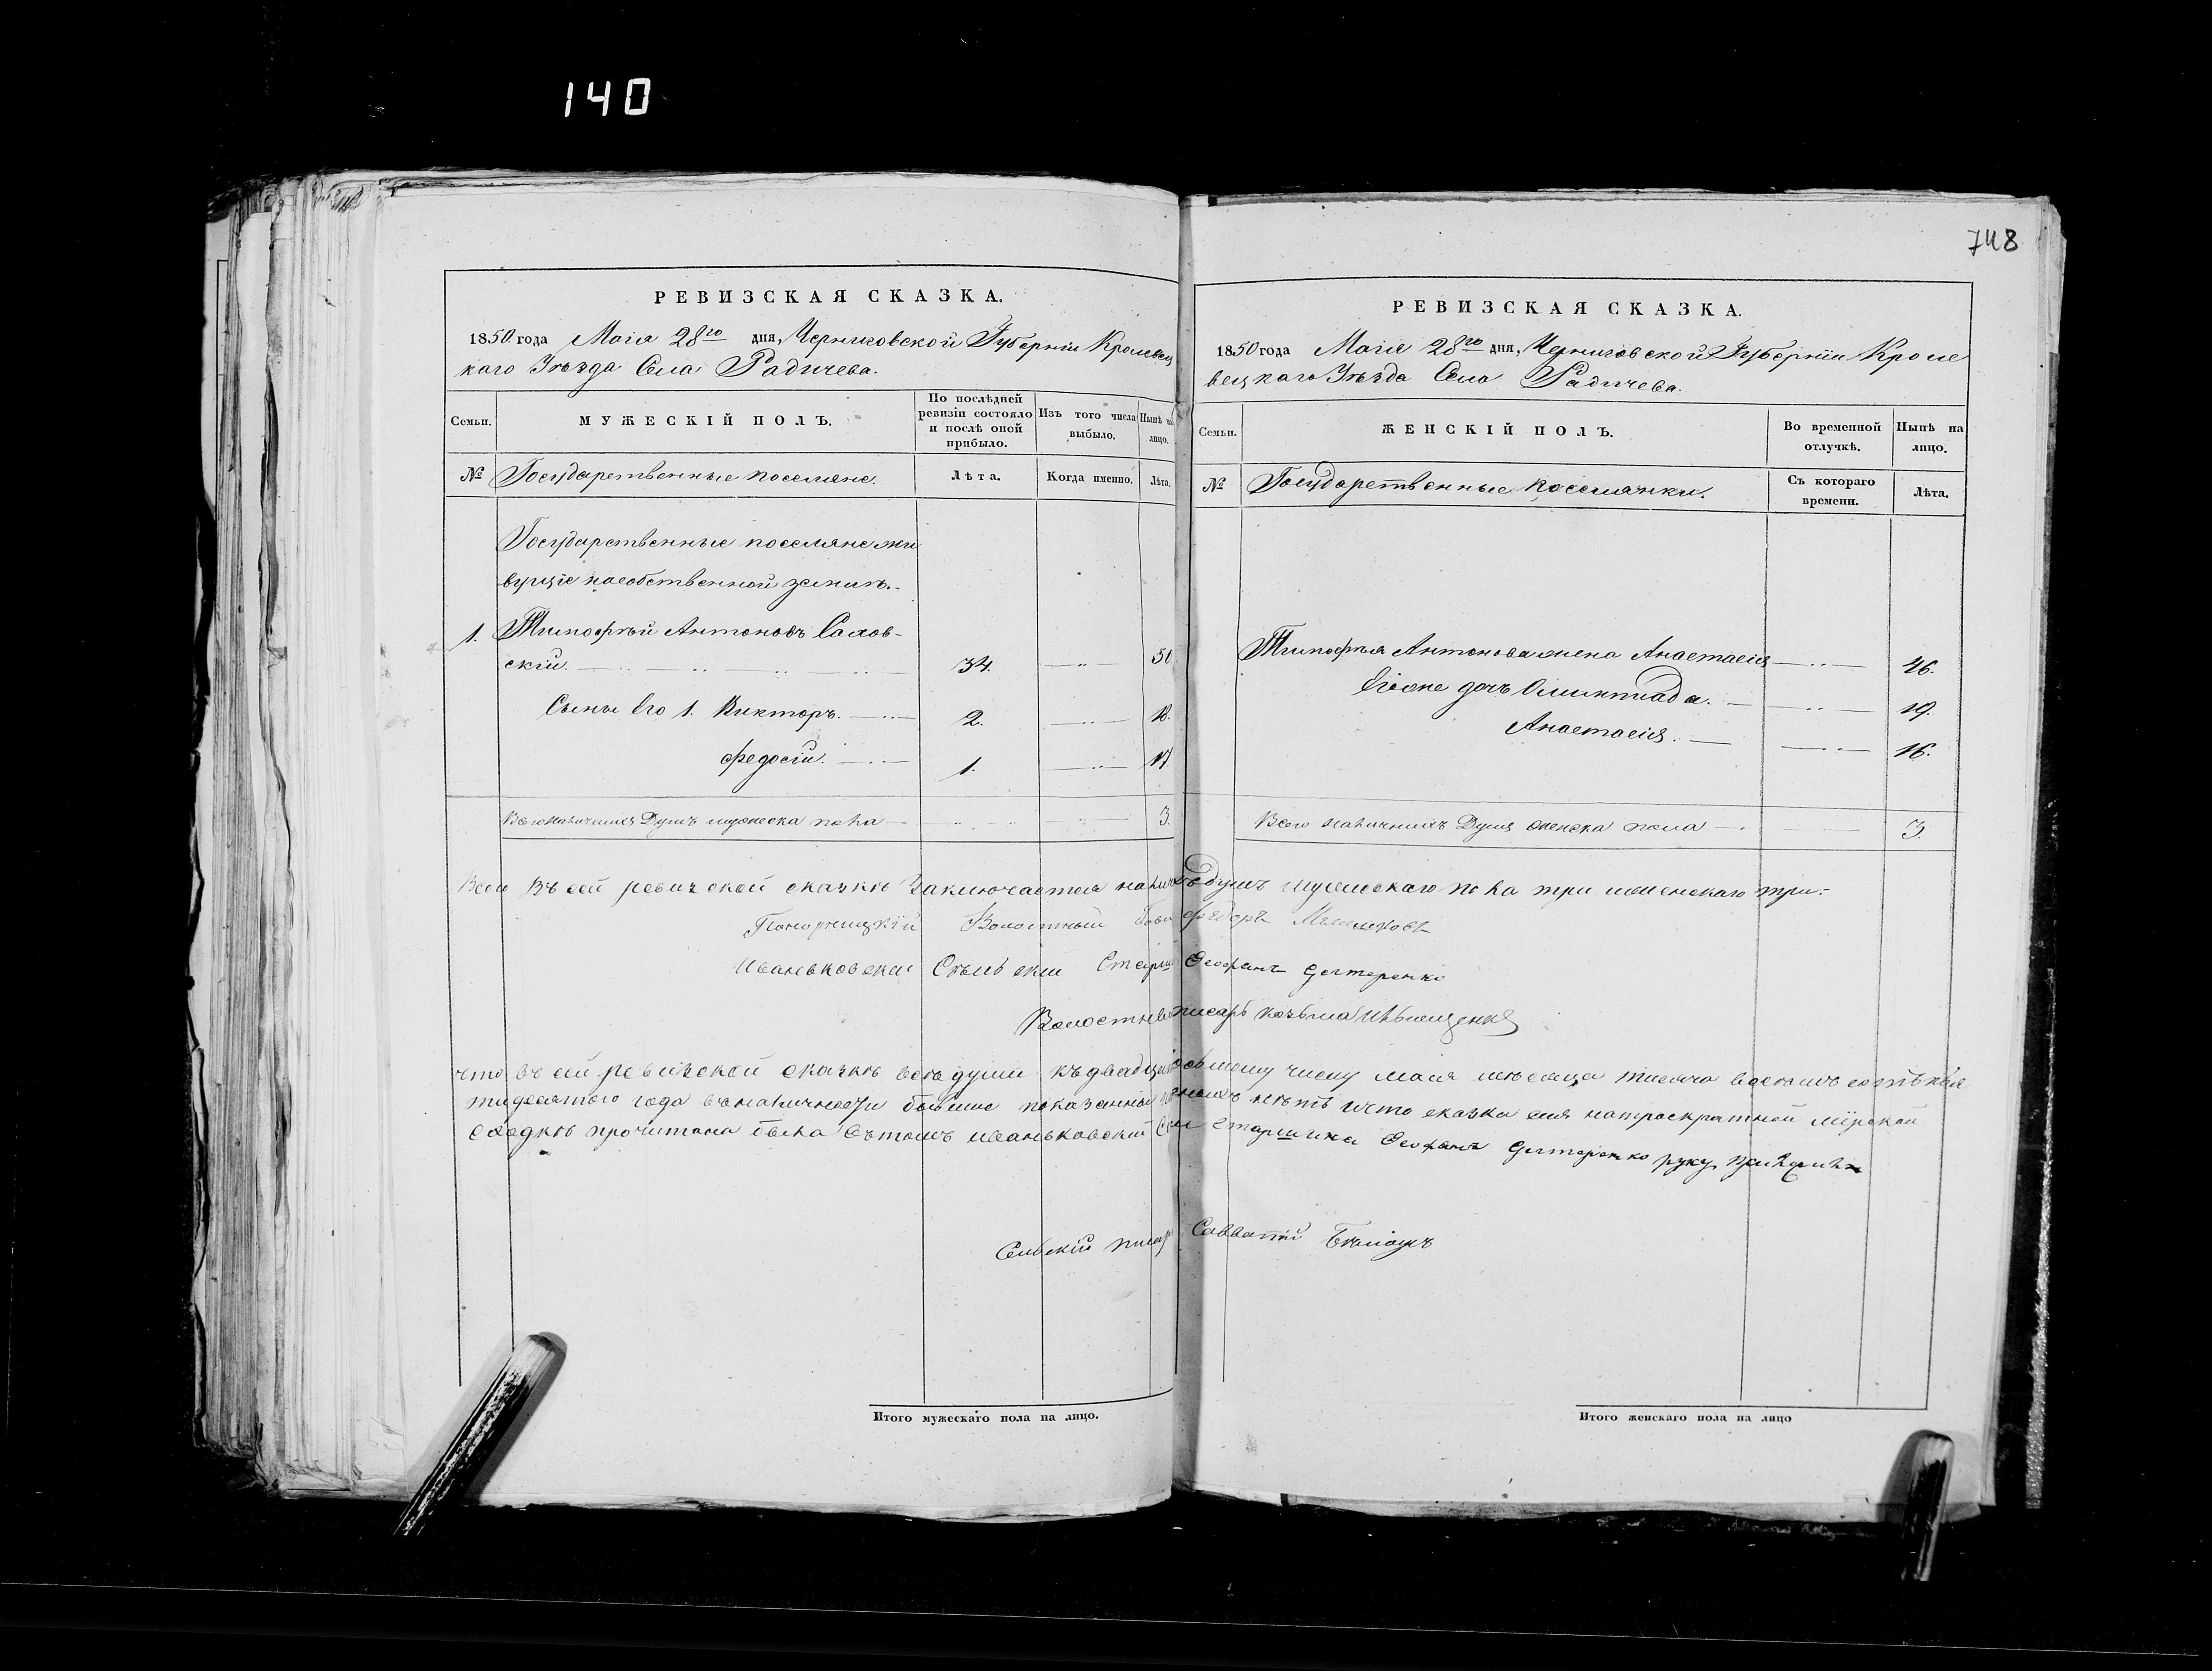 140
748
РЕВИЗСКАЯ СКАЗКА.
1850 года Маія 28го дня, Черниговской Губерніи Кролевец
каго Уѣзда Села Радичева.
Семьи.
МУЖЕСКІЙ ПОЛЪ.
По послѣдней ревизіи состояло и послѣ оной прибыло.
Изъ того числа выбыло.
Нынѣ на лицо.
№ Государственные поселяне.
Лѣта.
Когда именно.
Лѣта.
Государственные поселяне жи
вущіе насобственной землѣ.
1. Тимофѣй Антоновъ Сахов-
скій. 34. 50
Сыны Его 1. Викторъ. 2. 18.
Федосій. 1. 17
Всего наличныхъ Душъ мужеска пола 3.
РЕВИЗСКАЯ СКАЗКА.
1850 года Маія 28го дня, Черниговской Губерніи Кроле
вецкаго Уѣзда Села Радичева.
Семьи.
ЖЕНСКІЙ ПОЛЪ.
Во временной отлучкѣ.
Нынѣ на лицо.
№ Государственные поселянки.
Съ котораго времени.
Лѣта.
Тимофѣя Антонова жена Анастасія 46.
Егоже дочь Олимпіада. 19.
Анастасія. 16.
Всего наличныхъ Душъ женска пола 3.
Всего Въ сей ревизской сказкѣ Заключается налич душъ мужескаго пола три женскаго три.
Понорницкій Волостный Голо Федоръ
Иваньковский Сельский Старш Феофанъ Дегтеренко
Волостный писарь Козьма
что въ сей ревизской сказкѣ всѣ души къ двадцать осьмому числу маія мѣсяца тысяча восемь сотъ пья
тидесятого года въ наличности бывшие показанны нѣтъ и что сказка сия на троекратной мірской
сходкѣ прочитана была Вътомъ иваньковский Сел Старшина Феофанъ Дегтеренко руку приложилъ
Сельскій писар Савватій
Итого мужескаго пола на лицо.
Итого женскаго пола на лицо